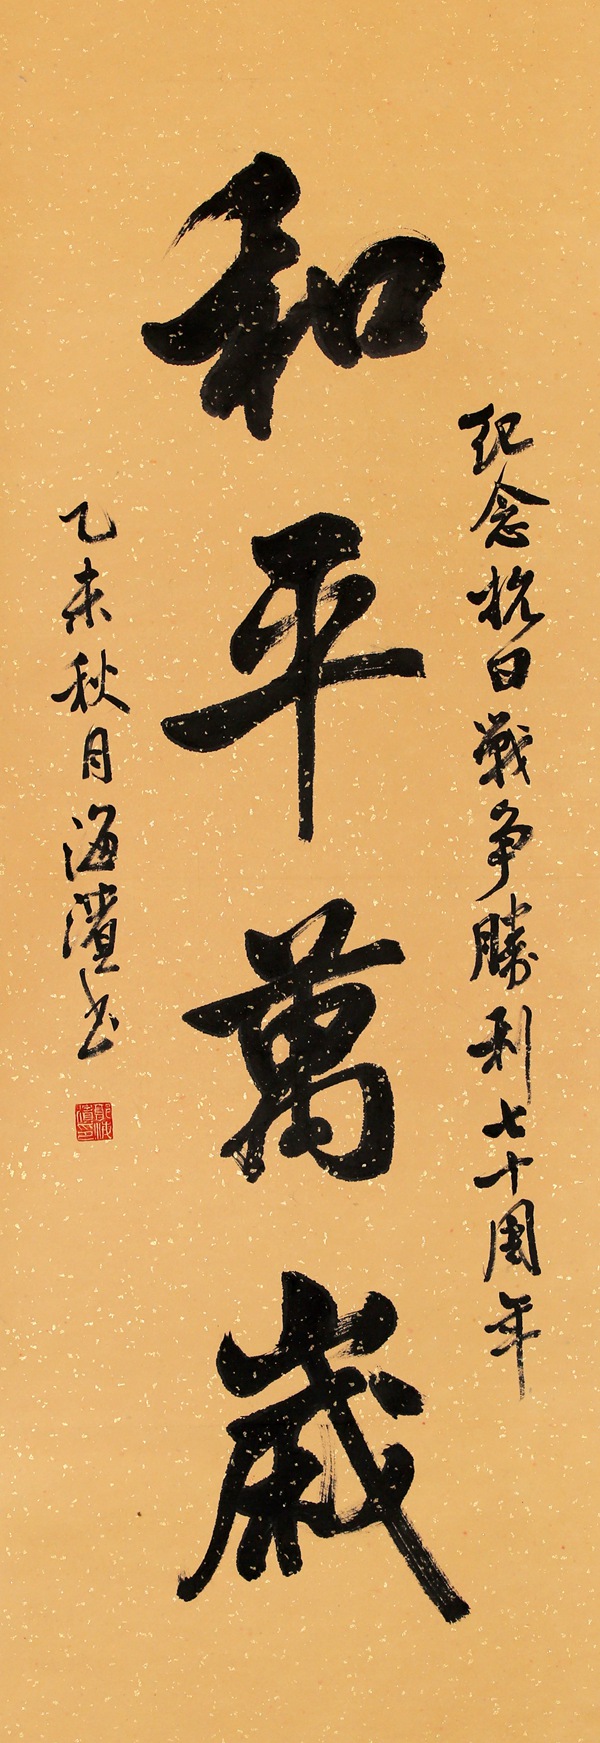 紀念抗日戰争勝利七十周年
和平萬歲
乙未秋月海濱书